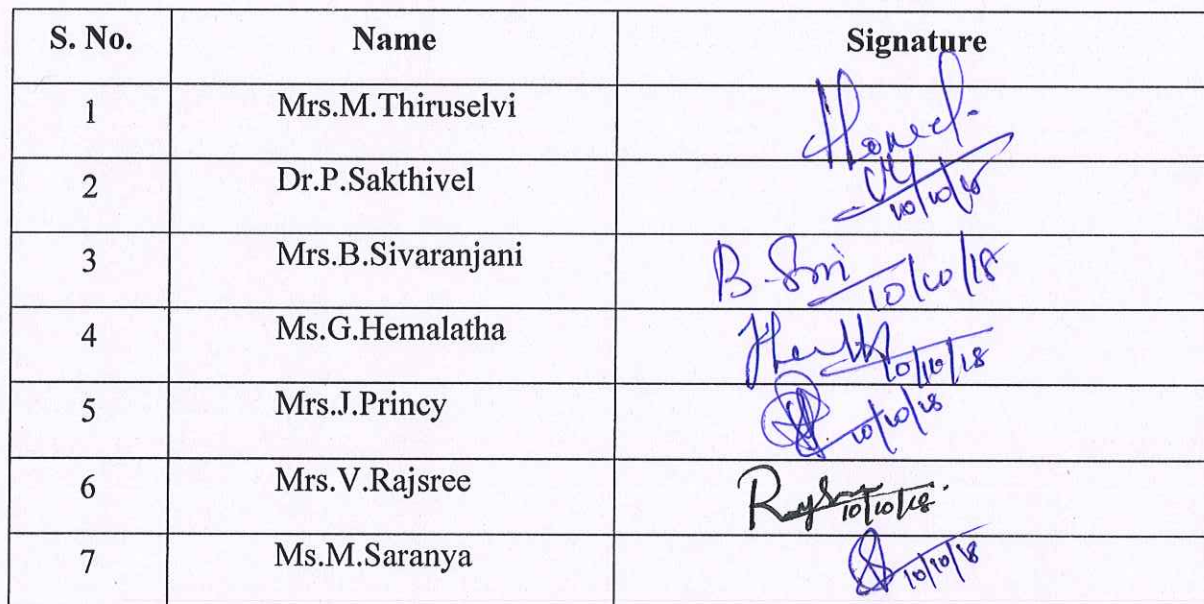 S. No. Name Signature
1 Mrs.M.Thiruselvi
2 Dr.P.Sakthivel 10/10/18
3 Mrs.B.Sivaranjani 10/10/18
4 Ms.G.Hemalatha 10/10/18
5 Mrs.J.Princy 10/10/18
6 Mrs.V.Rajsree 10/10/18
7 Ms.M.Saranya 10/10/18